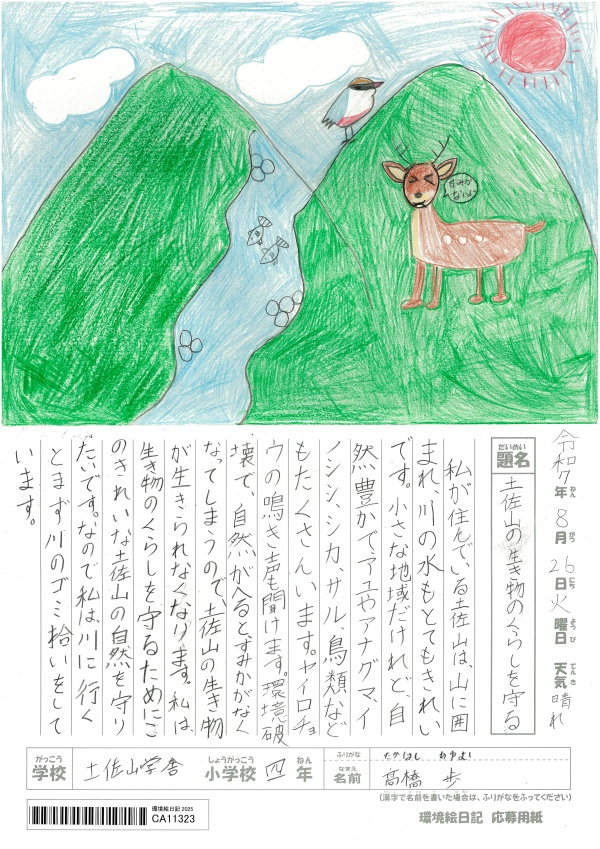 すみが
ないよ
令和7年8月26日火曜日 天気晴れ
ねん がつ にち ようび てんき
だいめい
題名 土佐山の生き物のくらしを守る
私が住んでいる土佐山は、山に囲
まれ、川の水もとてもきれい
です。小さな地域だけれど、自
然豊かで、アユやアナグマ、イ
ノシシ、シカ、サル、鳥類など
もたくさんいます。ヤイロチョ
ウの鳴き声も聞けます。環境破
壊で、自然が入るとすみかがなく
なってしまうので、土佐山の生き物
が生きられなくなります。私は、
生き物のくらしを守るためにこ
のきれいな土佐山の自然を守り
たいです。なので私は、川に行く
とまず川のゴミ拾いをして
います。
がっこう しょうがっこう ねん ふりがな たかはし
学校 土佐山学舎 小学校 四年 なまえ 名前 髙橋 歩
(漢字で名前を書いた場合は、ふりがなをふってください)
環境絵日記 2025
CA11323
環境絵日記 応募用紙